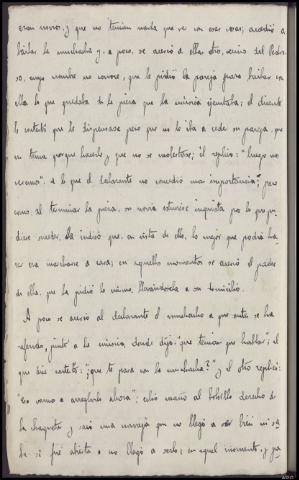 eran novios, y que no tenían nada que ver con esas cosas, accedió a
bailar la muchacha y, a poco, se acercó a ellos otro, vecino del Pedro-
so, cuyo nombre no conoce, que le pidió la pareja para bailar con
ella lo que quedaba de la pieza que la música ejecutaba; el dicente
le contestó que le dispensase pero que no le iba a ceder su pareja, que
no tenía porque hacerlo y que no se molestase; él replicó: "luego nos
veremos", a lo que el declarante no concedió una importancia; pero
como al terminar la pieza, su novia estuviese inquieta por lo que pu-
diese suceder, ella indicó que, en vista de ello, lo mejor que podría ha-
cer era marcharse a casa; en aquellos momentos se acercó el padre
de ella, que la pidió lo mismo, llevándosela a su domicilio.
A poco se acercó al declarante el muchacho a que antes se ha
referido, junto a la música donde dijo: que tenían que hablar", el
que dice contestó: "¿que te pasa con la muchacha?" y el otro replicó:
"Eso vamos a arreglarlo ahora"; echó mano al bolsillo derecho de
la chaqueta y sacó una navaja que no llegó a ver bien ni sa-
be si fué abierta o no llegó a serlo; en aquel momento, y por